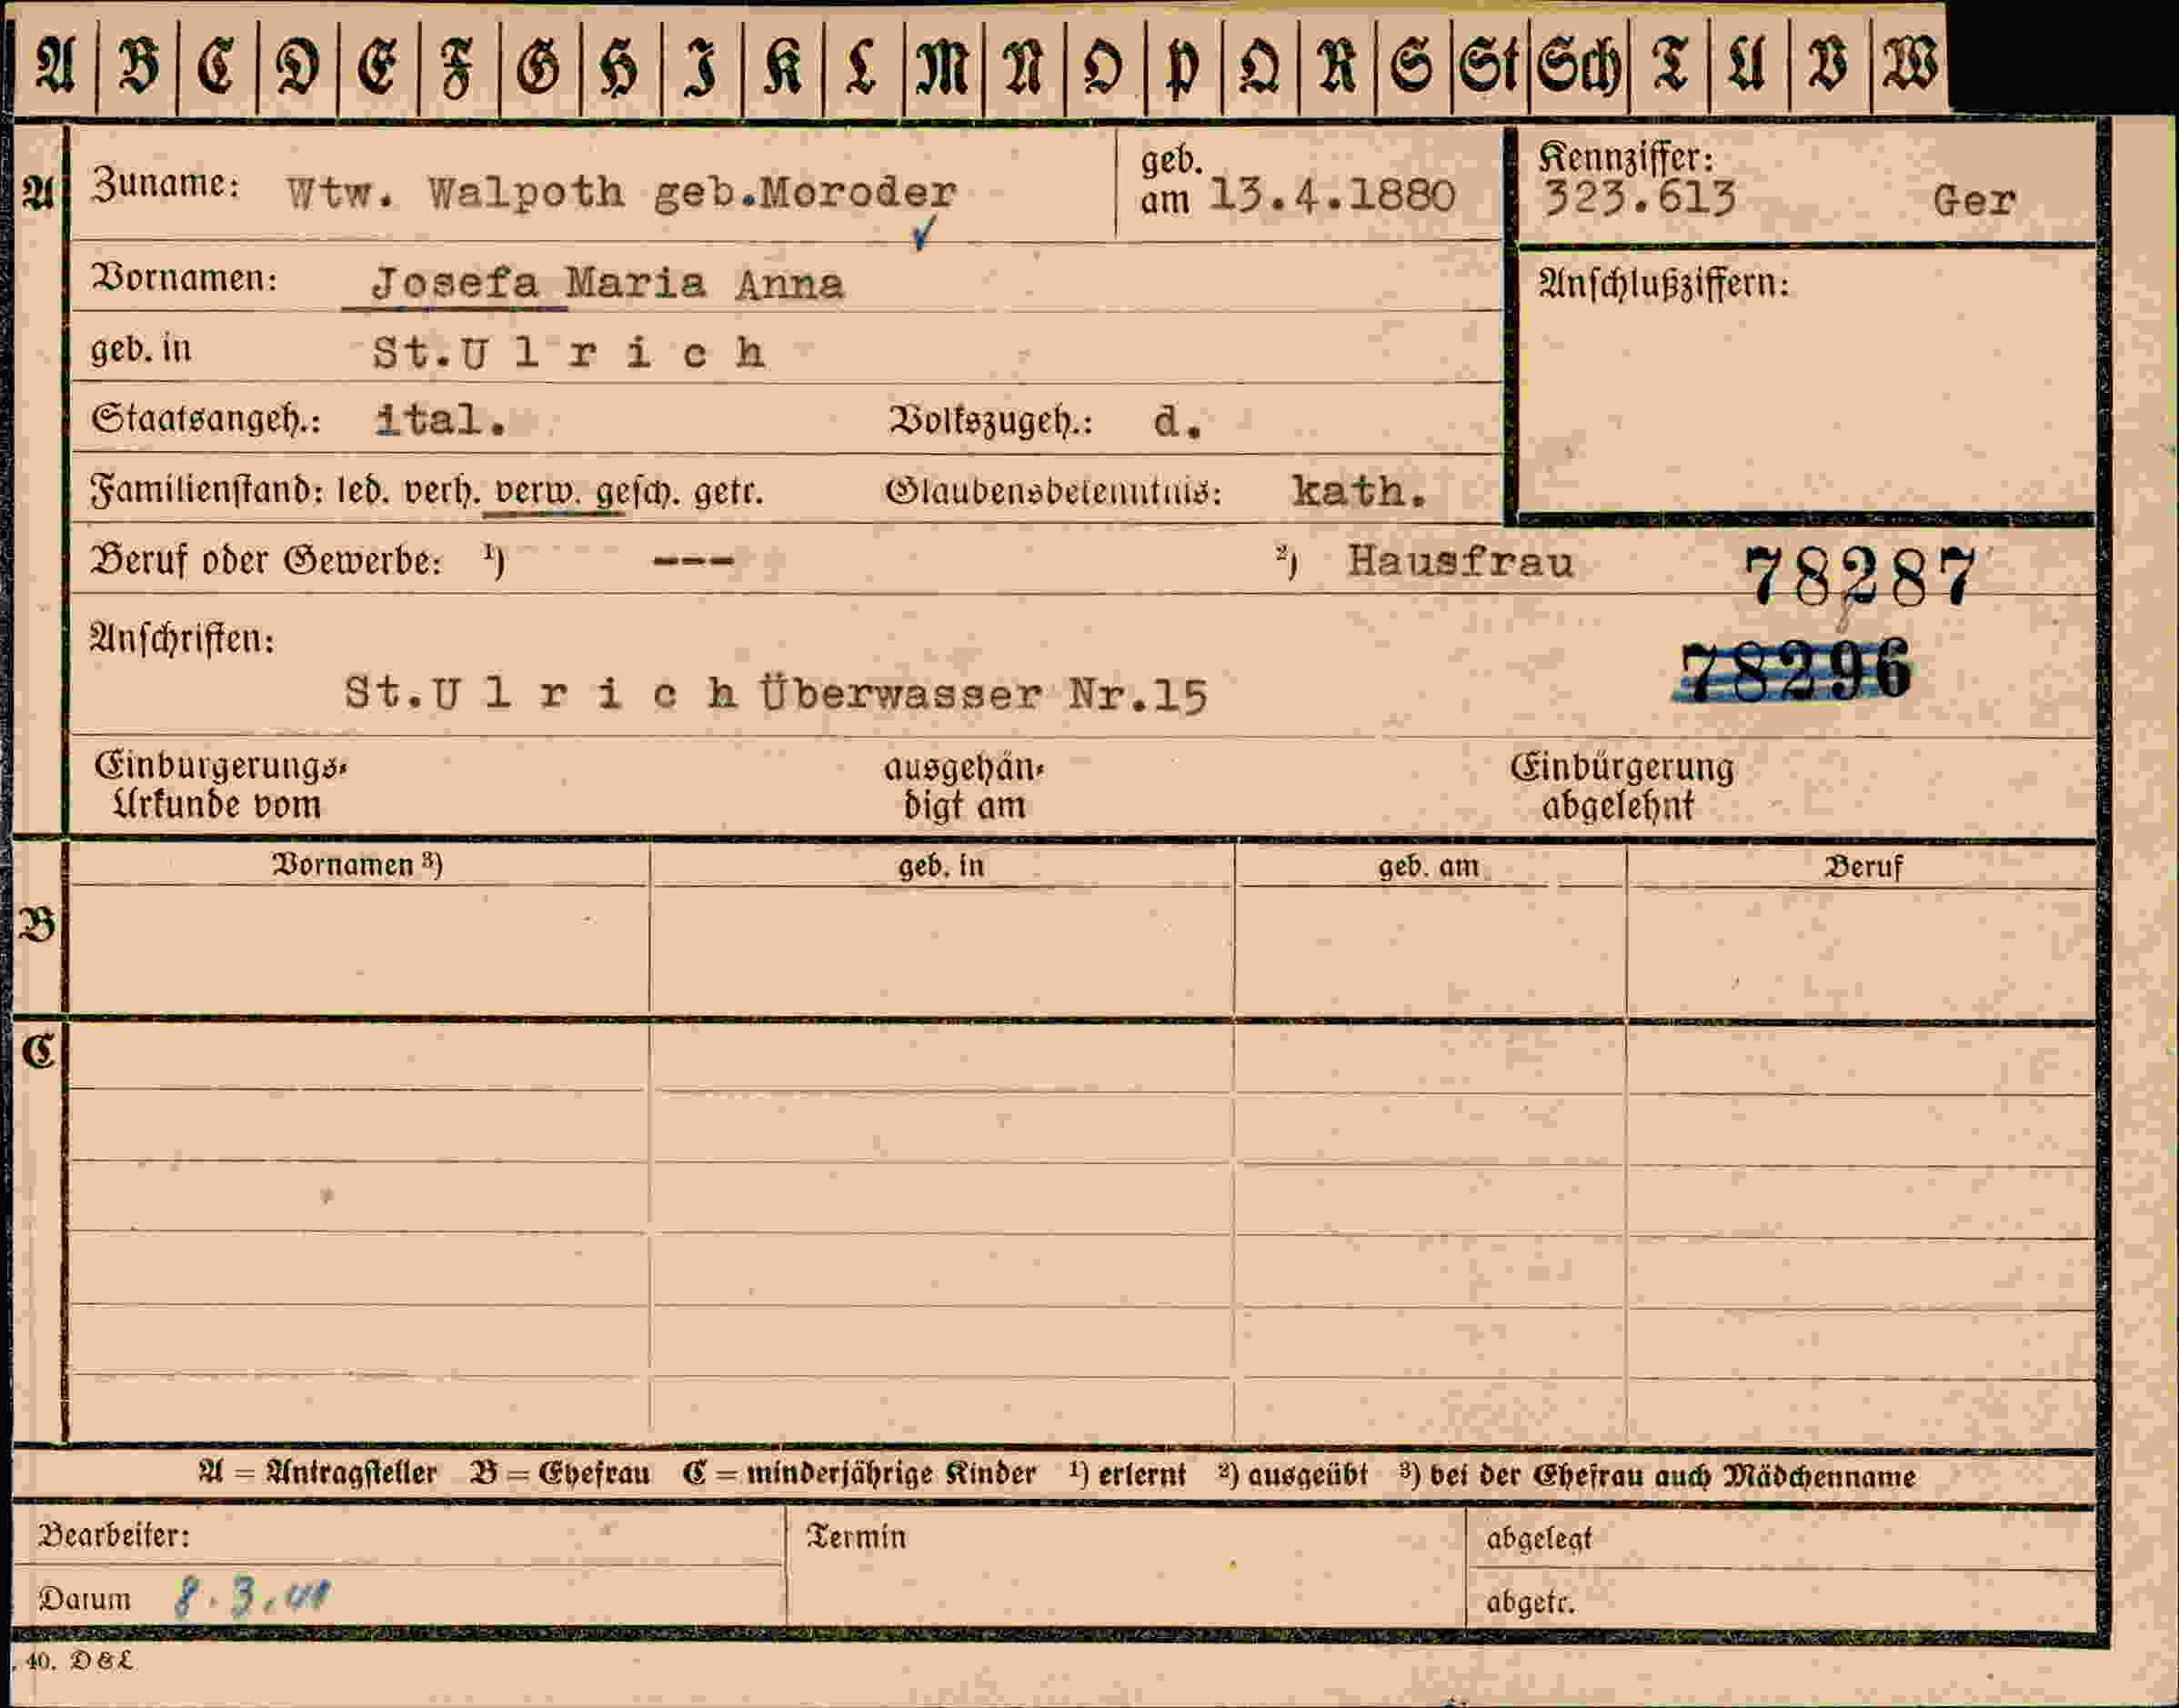 A B C D E F G H I K L M N O P Q R S St Sch T U V W
A Zuname: Wtw. Walpoth geb.Moroder geb. am 13.4.1880 Kennziffer: 323.613 Ger
Vornamen: Josefa Maria Anna Anschlußziffern:
geb. in St.U l r i c h
Staatsangeh.: ital. Volkszugeh.: d.
Familienstand: led. verh. verw. gesch. getr. Glaubensbekenntnis: kath.
Beruf oder Gewerbe: ¹) --- ²) Hausfrau 78287
Anschriften:
78296
St.U l r i c h Überwasser Nr.15
Einbürgerungs- ausgehän- Einbürgerung
Urkunde vom digt am abgelehnt
Vornamen ³) geb. in geb. am Beruf
B
C
A = Antragsteller B = Ehefrau C = minderjährige Kinder ¹) erlernt ²) ausgeübt ³) bei der Ehefrau auch Mädchenname
Bearbeiter: Termin abgelegt
Datum 8.3. abgetr.
40. D&L